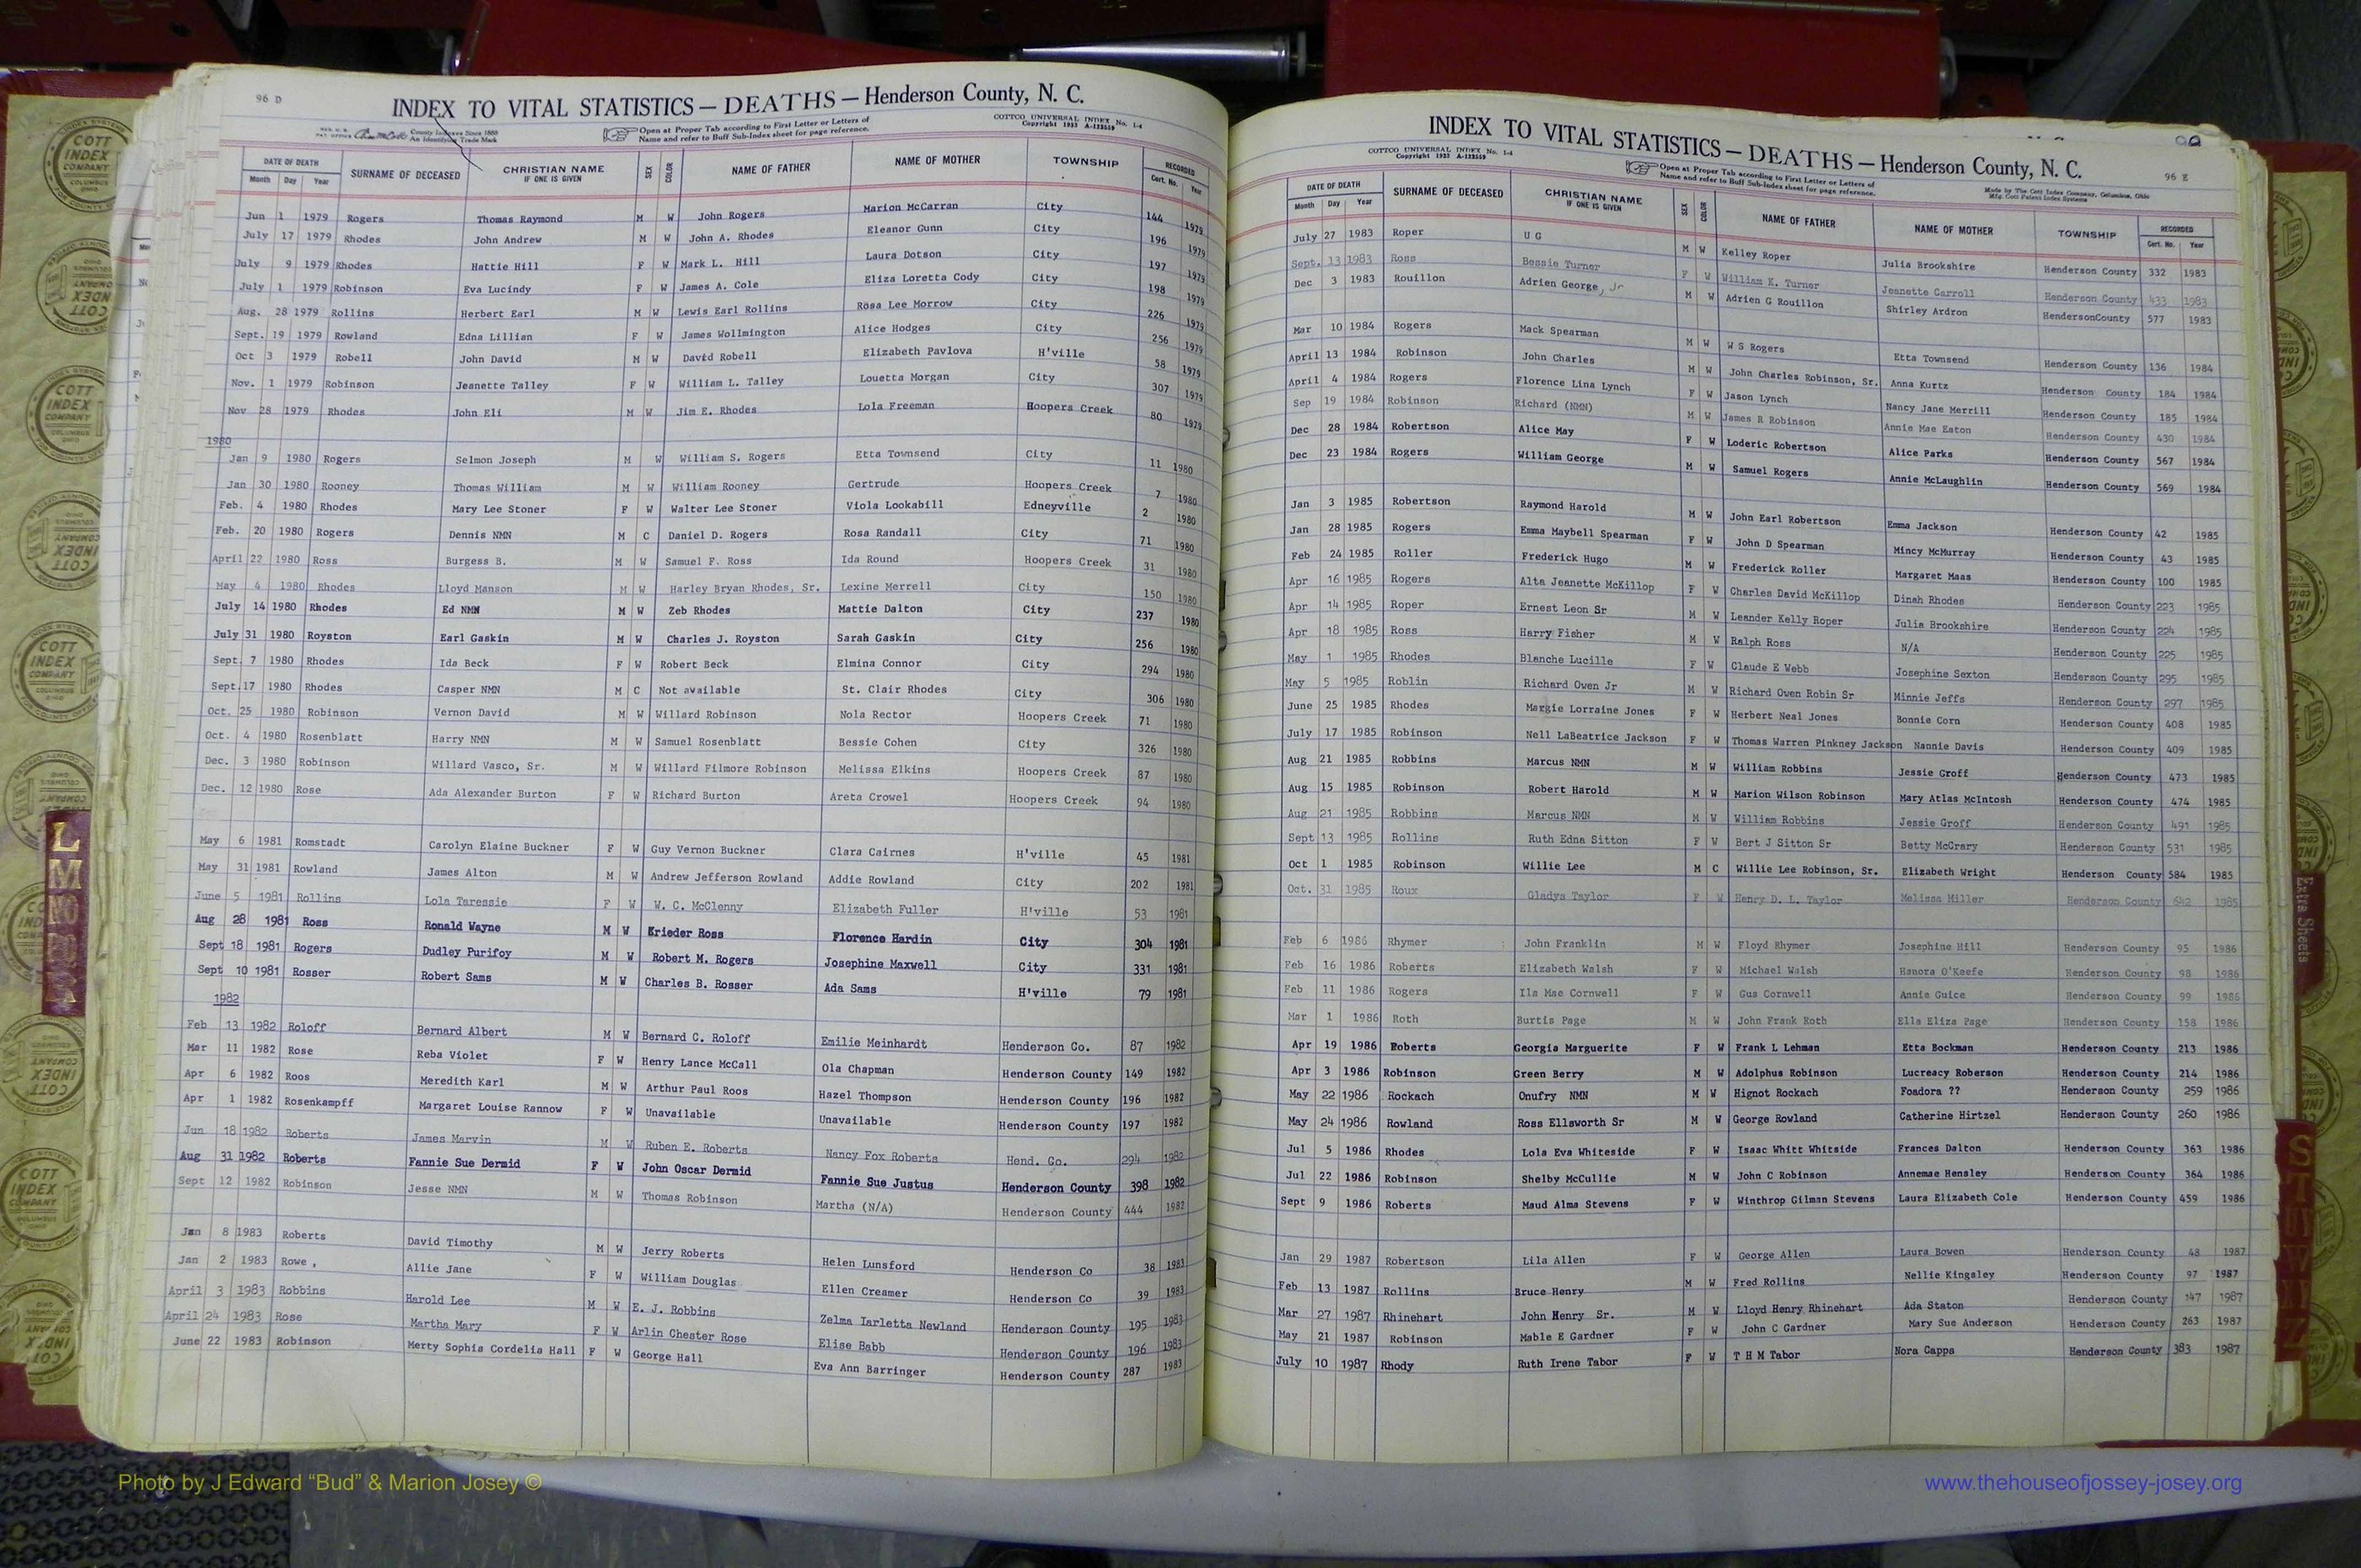 96 D
INDEX TO VITAL STATISTICS — DEATHS — Henderson County, N. C.
County Indexes Since 1888
An Identifying Trade Mark
Open at Proper Tab according to First Letter or Letters of
Name and refer to Buff Sub-Index sheet for page reference.
COTTCO UNIVERSAL INDEX No. 1-4
Copyright 1933 A-123559
DATE OF DEATH Month Day Year SURNAME OF DECEASED CHRISTIAN NAME IF ONE IS GIVEN SEX COLOR NAME OF FATHER NAME OF MOTHER TOWNSHIP RECORDED Cert. No. Year
Jun 1 1979 Rogers Thomas Raymond M W John Rogers Marion McCarran City 144 1979
July 17 1979 Rhodes John Andrew M W John A. Rhodes Eleanor Gunn City 196 1979
July 9 1979 Rhodes Hattie Hill F W Mark L. Hill Laura Dotson City 197 1979
July 1 1979 Robinson Eva Lucindy F W James A. Cole Eliza Loretta Cody City 198 1979
Aug. 28 1979 Rollins Herbert Earl M W Lewis Earl Rollins Rosa Lee Morrow City 226 1979
Sept. 19 1979 Rowland Edna Lillian F W James Wollmington Alice Hodges City 256 1979
Oct 3 1979 Robell John David M W David Robell Elizabeth Pavlova H'ville 58 1979
Nov. 1 1979 Robinson Jeanette Talley F W William L. Talley Louetta Morgan City 307 1979
Nov 28 1979 Rhodes John Eli M W Jim E. Rhodes Lola Freeman Hoopers Creek 80 1979
1980
Jan 9 1980 Rogers Selmon Joseph M W William S. Rogers Etta Townsend City 11 1980
Jan 30 1980 Rooney Thomas William M W William Rooney Gertrude Hoopers Creek 7 1980
Feb. 4 1980 Rhodes Mary Lee Stoner F W Walter Lee Stoner Viola Lookabill Edneyville 2 1980
Feb. 20 1980 Rogers Dennis NMN M C Daniel D. Rogers Rosa Randall City 71 1980
April 22 1980 Ross Burgess B. M W Samuel F. Ross Ida Round Hoopers Creek 31 1980
May 4 1980 Rhodes Lloyd Manson M W Harley Bryan Rhodes, Sr. Lexine Merrell City 150 1980
July 14 1980 Rhodes Ed NMN M W Zeb Rhodes Mattie Dalton City 237 1980
July 31 1980 Royston Earl Gaskin M W Charles J. Royston Sarah Gaskin City 256 1980
Sept. 7 1980 Rhodes Ida Beck F W Robert Beck Elmina Connor City 294 1980
Sept. 17 1980 Rhodes Casper NMN M C Not available St. Clair Rhodes City 306 1980
Oct. 25 1980 Robinson Vernon David M W Willard Robinson Nola Rector Hoopers Creek 71 1980
Oct. 4 1980 Rosenblatt Harry NMN M W Samuel Rosenblatt Bessie Cohen City 326 1980
Dec. 3 1980 Robinson Willard Vasco, Sr. M W Willard Filmore Robinson Melissa Elkins Hoopers Creek 87 1980
Dec. 12 1980 Rose Ada Alexander Burton F W Richard Burton Areta Crowel Hoopers Creek 94 1980
May 6 1981 Romstadt Carolyn Elaine Buckner F W Guy Vernon Buckner Clara Cairnes H'ville 45 1981
May 31 1981 Rowland James Alton M W Andrew Jefferson Rowland Addie Rowland City 202 1981
June 5 1981 Rollins Lola Taressie F W W. C. McClenny Elizabeth Fuller H'ville 53 1981
Aug 28 1981 Ross Ronald Wayne M W Krieder Ross Florence Hardin City 304 1981
Sept 18 1981 Rogers Dudley Purifoy M W Robert M. Rogers Josephine Maxwell City 331 1981
Sept 10 1981 Rosser Robert Sams M W Charles B. Rosser Ada Sams H'ville 79 1981
1982
Feb 13 1982 Roloff Bernard Albert M W Bernard C. Roloff Emilie Meinhardt Henderson Co. 87 1982
Mar 11 1982 Rose Reba Violet F W Henry Lance McCall Ola Chapman Henderson County 149 1982
Apr 6 1982 Roos Meredith Karl M W Arthur Paul Roos Hazel Thompson Henderson County 196 1982
Apr 1 1982 Rosenkampff Margaret Louise Rannow F W Unavailable Unavailable Henderson County 197 1982
Jun 18 1982 Roberts James Marvin M W Ruben E. Roberts Nancy Fox Roberts Hend. Co. 294 1982
Aug 31 1982 Roberts Fannie Sue Dermid F W John Oscar Dermid Fannie Sue Justus Henderson County 398 1982
Sept 12 1982 Robinson Jesse NMN M W Thomas Robinson Martha (N/A) Henderson County 444 1982
Jan 8 1983 Roberts David Timothy M W Jerry Roberts Helen Lunsford Henderson Co 38 1983
Jan 2 1983 Rowe, Allie Jane F W William Douglas Ellen Creamer Henderson Co 39 1983
April 3 1983 Robbins Harold Lee M W E. J. Robbins Zelma Iarletta Newland Henderson County 195 1983
April 24 1983 Rose Martha Mary F W Arlin Chester Rose Elise Babb Henderson County 196 1983
June 22 1983 Robinson Merty Sophia Cordelia Hall F W George Hall Eva Ann Barringer Henderson County 287 1983
INDEX TO VITAL STATISTICS — DEATHS — Henderson County, N. C.
96 E
COTTCO UNIVERSAL INDEX No. 1-4
Copyright 1933 A-123559
Open at Proper Tab according to First Letter or Letters of
Name and refer to Buff Sub-Index sheet for page reference.
Made by The Cott Index Company, Columbus, Ohio
Mfg. Cott Patent Index Systems
DATE OF DEATH Month Day Year SURNAME OF DECEASED CHRISTIAN NAME IF ONE IS GIVEN SEX COLOR NAME OF FATHER NAME OF MOTHER TOWNSHIP RECORDED Cert. No. Year
July 27 1983 Roper U G M W Kelley Roper Julia Brookshire Henderson County 332 1983
Sept. 13 1983 Ross Bessie Turner F W William K. Turner Jeanette Carroll Henderson County 433 1983
Dec 3 1983 Rouillon Adrien George, Jr M W Adrien G Rouillon Shirley Ardron HendersonCounty 577 1983
Mar 10 1984 Rogers Mack Spearman M W W S Rogers Etta Townsend Henderson County 136 1984
April 13 1984 Robinson John Charles M W John Charles Robinson, Sr. Anna Kurtz Henderson County 184 1984
April 4 1984 Rogers Florence Lina Lynch F W Jason Lynch Nancy Jane Merrill Henderson County 185 1984
Sep 19 1984 Robinson Richard (NMN) M W James R Robinson Annie Mae Eaton Henderson County 430 1984
Dec 28 1984 Robertson Alice May F W Loderic Robertson Alice Parks Henderson County 567 1984
Dec 23 1984 Rogers William George M W Samuel Rogers Annie McLaughlin Henderson County 569 1984
Jan 3 1985 Robertson Raymond Harold M W John Earl Robertson Emma Jackson Henderson County 42 1985
Jan 28 1985 Rogers Emma Maybell Spearman F W John D Spearman Mincy McMurray Henderson County 43 1985
Feb 24 1985 Roller Frederick Hugo M W Frederick Roller Margaret Maas Henderson County 100 1985
Apr 16 1985 Rogers Alta Jeanette McKillop F W Charles David McKillop Dinah Rhodes Henderson County 223 1985
Apr 14 1985 Roper Ernest Leon Sr M W Leander Kelly Roper Julia Brookshire Henderson County 224 1985
Apr 18 1985 Ross Harry Fisher M W Ralph Ross N/A Henderson County 225 1985
May 1 1985 Rhodes Blanche Lucille F W Claude E Webb Josephine Sexton Henderson County 295 1985
May 5 1985 Roblin Richard Owen Jr M W Richard Owen Robin Sr Minnie Jeffs Henderson County 297 1985
June 25 1985 Rhodes Margie Lorraine Jones F W Herbert Neal Jones Bonnie Corn Henderson County 408 1985
July 17 1985 Robinson Nell LaBeatrice Jackson F W Thomas Warren Pinkney Jackson Nannie Davis Henderson County 409 1985
Aug 21 1985 Robbins Marcus NMN M W William Robbins Jessie Groff Henderson County 473 1985
Aug 15 1985 Robinson Robert Harold M W Marion Wilson Robinson Mary Atlas McIntosh Henderson County 474 1985
Aug 21 1985 Robbins Marcus NMN M W William Robbins Jessie Groff Henderson County 491 1985
Sept 13 1985 Rollins Ruth Edna Sitton F W Bert J Sitton Sr Betty McCrary Henderson County 531 1985
Oct 1 1985 Robinson Willie Lee M C Willie Lee Robinson, Sr. Elizabeth Wright Henderson County 584 1985
Oct. 31 1985 Roux Gladys Taylor F W Henry D. L. Taylor Melissa Miller Henderson County 642 1985
Feb 6 1986 Rhymer John Franklin M W Floyd Rhymer Josephine Hill Henderson County 95 1986
Feb 16 1986 Roberts Elizabeth Walsh F W Michael Walsh Hanora O'Keefe Henderson County 98 1986
Feb 11 1986 Rogers Ila Mae Cornwell F W Gus Cornwell Annie Guice Henderson County 99 1986
Mar 1 1986 Roth Burtis Page M W John Frank Roth Ella Eliza Page Henderson County 158 1986
Apr 19 1986 Roberts Georgia Marguerite F W Frank L Lehman Etta Bockman Henderson County 213 1986
Apr 3 1986 Robinson Green Berry M W Adolphus Robinson Lucreacy Roberson Henderson County 214 1986
May 22 1986 Rockach Onufry NMN M W Hignot Rockach Foadora ?? Henderson County 259 1986
May 24 1986 Rowland Ross Ellsworth Sr M W George Rowland Catherine Hirtzel Henderson County 260 1986
Jul 5 1986 Rhodes Lola Eva Whiteside F W Isaac Whitt Whitside Frances Dalton Henderson County 363 1986
Jul 22 1986 Robinson Shelby McCullie M W John C Robinson Annemae Hensley Henderson County 364 1986
Sept 9 1986 Roberts Maud Alma Stevens F W Winthrop Gilman Stevens Laura Elizabeth Cole Henderson County 459 1986
Jan 29 1987 Robertson Lila Allen F W George Allen Laura Bowen Henderson County 48 1987
Feb 13 1987 Rollins Bruce Henry M W Fred Rollins Nellie Kingsley Henderson County 97 1987
Mar 27 1987 Rhinehart John Henry Sr. M W Lloyd Henry Rhinehart Ada Staton Henderson County 147 1987
May 21 1987 Robinson Mable E Gardner F W John C Gardner Mary Sue Anderson Henderson County 263 1987
July 10 1987 Rhody Ruth Irene Tabor F W T H M Tabor Nora Capps Henderson County 383 1987
COTT INDEX COMPANY COLUMBUS OHIO
L
M
Extra Sheets
S
T
Photo by J Edward “Bud” & Marion Josey ©
www.thehouseofjossey-josey.org